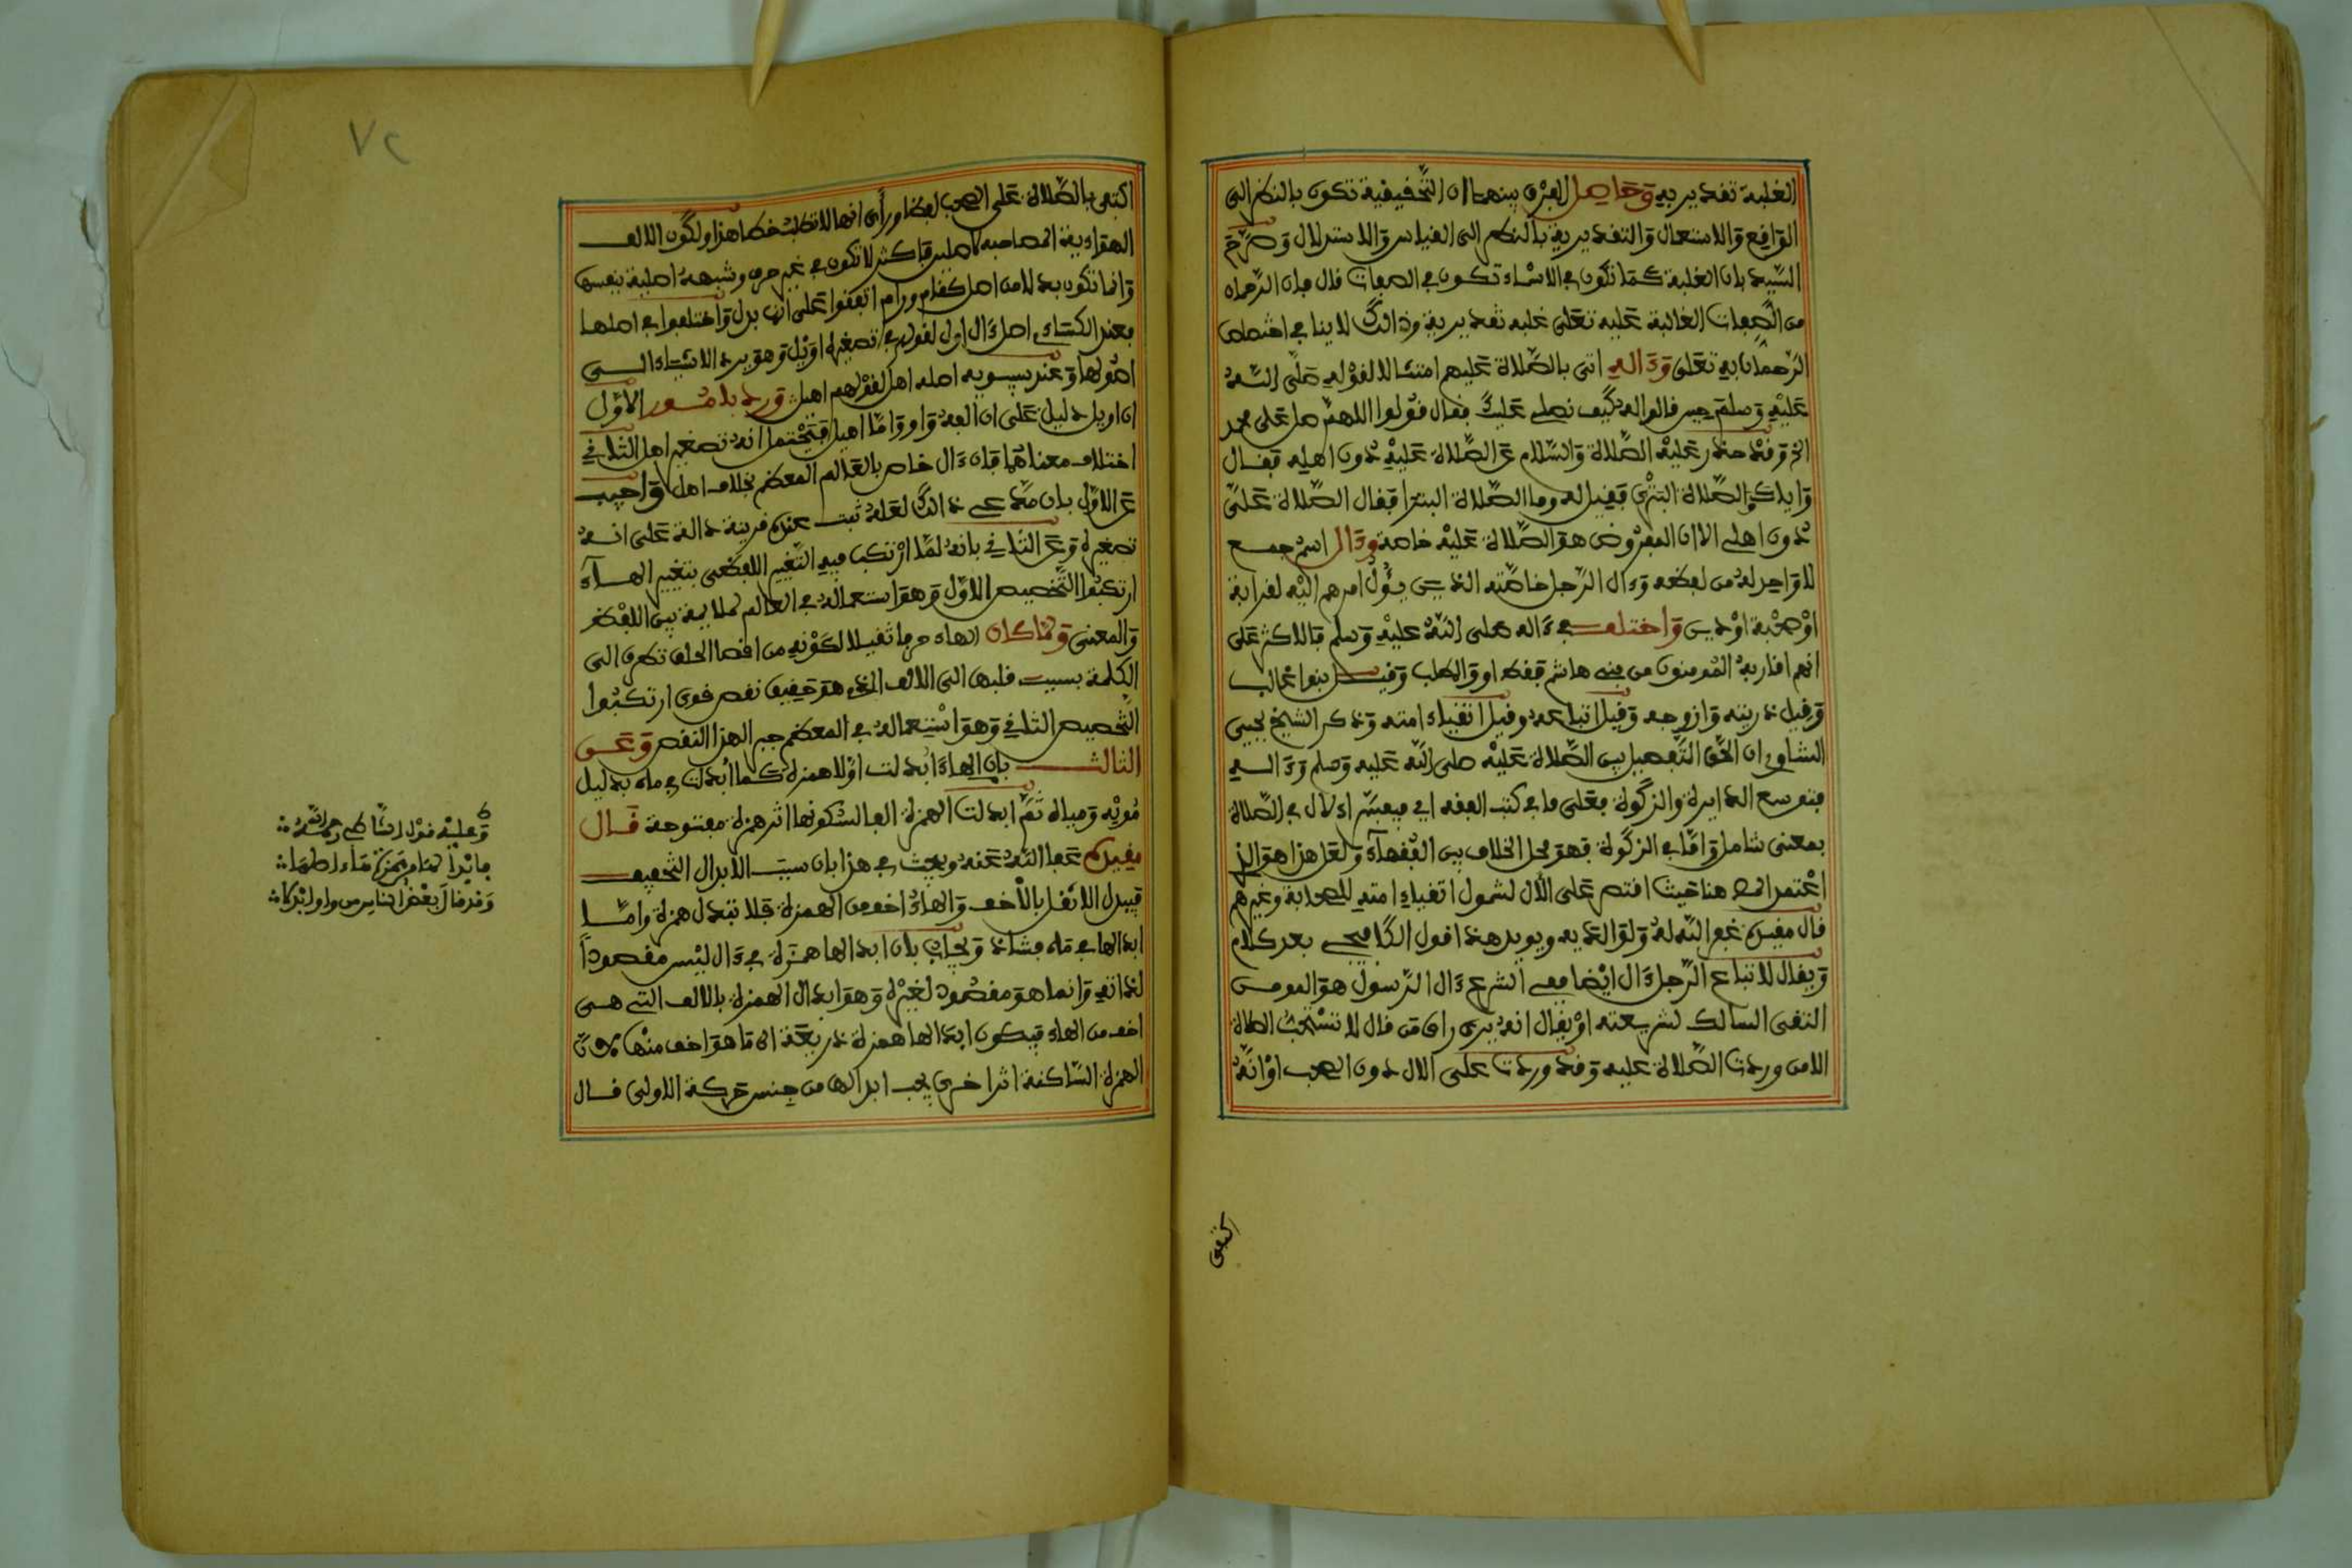 الغلبة تقديرية وحاصل الفرق بينهما ان التحقيقية تكون بالنظر الى
الواقع والاستعمال والتقديرية بالنظر الى القياس والاستدلال وصرح
السيد بان الغلبة كما تكون في الاسماء تكون في الصفات قال فان الرحمان
من الصفات الغالبة عليه تعلى غلبة تقديرية وذالك لا ينافي اختصاص
الرحمان به تعلى وءاله اتى بالصلاة عليهم امتثالا لقوله صلى الله
عليه وسلم حين قالوا له كيف نصلي عليك فقال قولوا اللهم صل على محمد
الخ وقد حذر عليه الصلاة والسلام عن الصلاة عليه دون اهله فقال
واياكم والصلاة البترى فقيل له وما الصلاة البترا فقال الصلاة على
دون اهلي الا ان المفروض هو الصلاة عليه خاصة وءال اسم جمع
لا واحد له من لفظه وءال الرجل خاصته الذين يؤل امرهم اليه لقرابة
او صحبة او دين واختلف في ءاله صلى الله عليه وسلم فالاكثر على
انهم اقاربه المومنون من بني هاشم فقط او والمطلب وقيل بنوا غالب
وقيل ذريته وازوجه وقيل اتباعه وقيل اتقياء امته وذكر الشيخ يحيى
الشاوي ان الحق التفصيل بين الصلاة عليه صلى الله عليه وسلم وءاله
فتوسع الدايرة والزكوة فعلى ما في كتب الفقه اي فيفسر الال في الصلاة
بمعنى شامل واما في الزكوة فهو محل الخلاف بين الفقهاء ولعل هذا هو الذي
اعتمد المص هنا حيث اقتصر على الال لشمول اتقياء امته للصحابة وغيرهم
قال مقيده غفر الله له ولوالديه ويويد هذا قول الكافيجي بعد كلام
ويقال لاتباع الرجل ءال ايضا ففي الشرع ءال الرسول هو المومن
التقى السالك لشريعته او يقال انه يرى راي من قال لا تستحب الصلاة
الا من وردت الصلاة عليه وقد وردت على الال دون الصحب او انه
كتفى
٧٢
اكتفى بالصلاة على الصحب لفظا ورأى انها لا تطلب خطا هذا ولكون الالف
الهوائية المصاحبة لا صلين فاكثر لا تكون في غير حرف وشبهه اصلية بنفسها
وانما تكون بدلا من اصل كقام ورام اتفقوا على انها بدل واختلفوا في اصلها
فعند الكساءي اصل ءال اول لقولهم في تصغيره اويل وهو يرد الاشياء الى
اصولها وعند سيبويه اصله اهل لقولهم اهيل ورد بامور الاول
ان اويل دليل على ان الفه واو واما اهيل فيحتمل انه تصغير اهل الثاني
اختلاف معناهما فان ءال خاص بالعالم المعظم بخلاف اهل واجيب
عن الاول بان مدعي ذالك لعله ثبت عنده قرينة دالة على انه
تصغيره وعن الثاني بانه لما ارتكب فيه التغيير اللفظي بتغيير الهاء
ارتكبوا التخصيص الاول وهو استعماله في العالم لملايمة بين اللفظ
والمعنى ولما كان الهاء حرفا ثقيلا لكونه من اقصا الحلق تطرق الى
الكلمة بسبب قلبها الى الالف الذي هو خفيف نقص قوي ارتكبوا
التخصيص الثاني وهو استعماله في المعظم جبرا لهذا النقص وعن
الثالث بان الهاء ابدلت اولا همزة كما ابدلت في ماء بدليل
مويه ومياه ثم ابدلت الهمزة الفا لسكونها اثر همزة مفتوحة قال
مقيده عفا الله عنه وبحث في هذا بان سبب الابدال التخفيف
فيبدل الاثقل بالاخف والهاء اخف من الهمزة فلا تبدل همزة واما
ابدالها في ماء فشاذ ويجاب بان ابدالها همزة في ءال ليس مقصودا
لذاته وانما هو مقصود لغيره وهو ابدال الهمزة بالالف التي هي
اخف من الهاء فيكون ابدالها همزة ذريعة الى ما هو اخف منها لان
الهمزة الساكنة اثر اخرى يجب ابدالها من جنس حركة الاولى قال
وعليه قول الشاطبي رحمه الله
فابدالـ همزة هاء اصلها
وقد قال بعض الناس من واو ابدلا